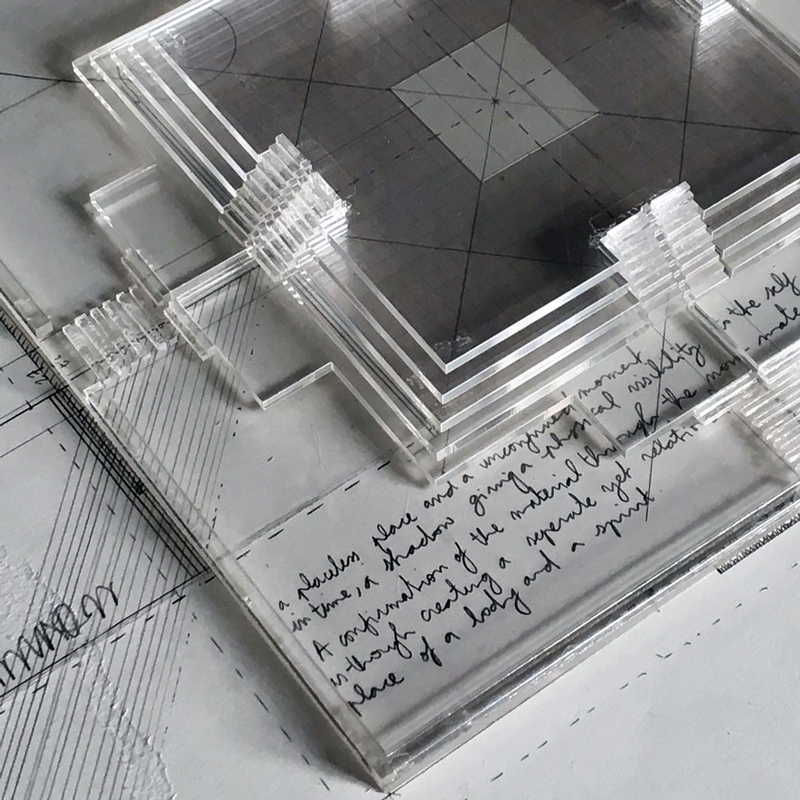 a placeless place and a unconfined moment
in time, a shadow giving a physical visibility
A confirmation of the material through the non-mate
is though creating a seperate yet relatio
place of a body and a spirit
the self